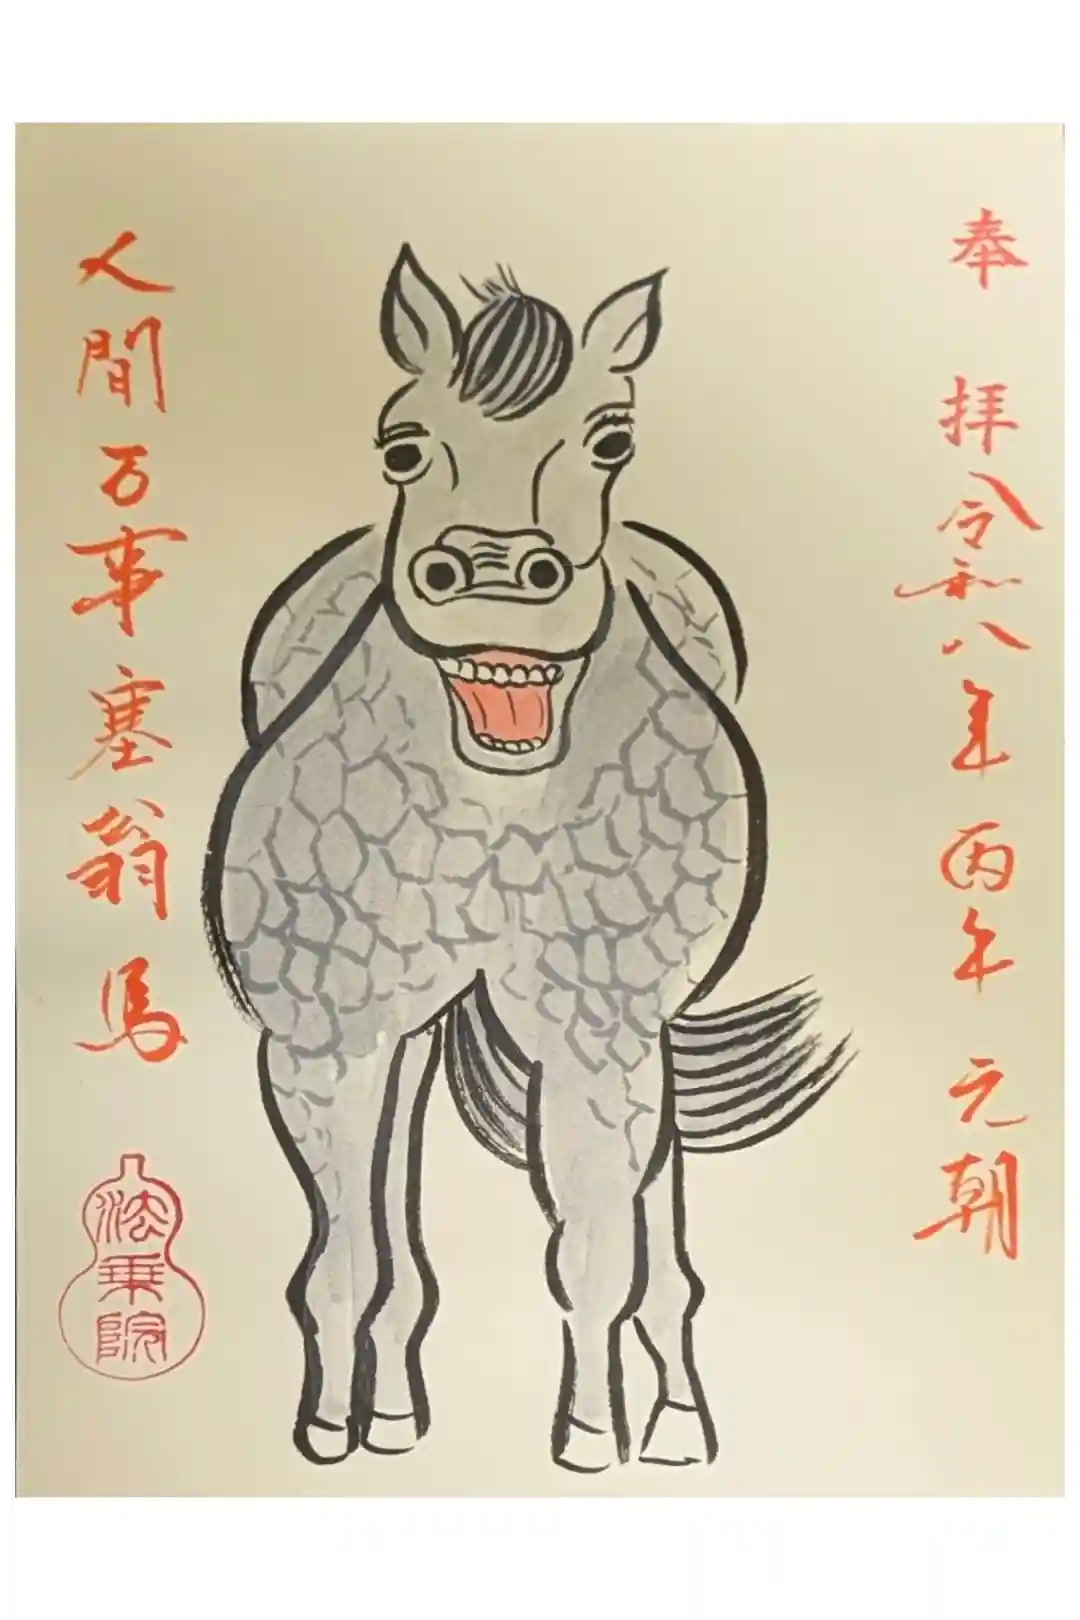 奉 拝 令和八年 丙午 元朝
人間万事塞翁馬
法乗院